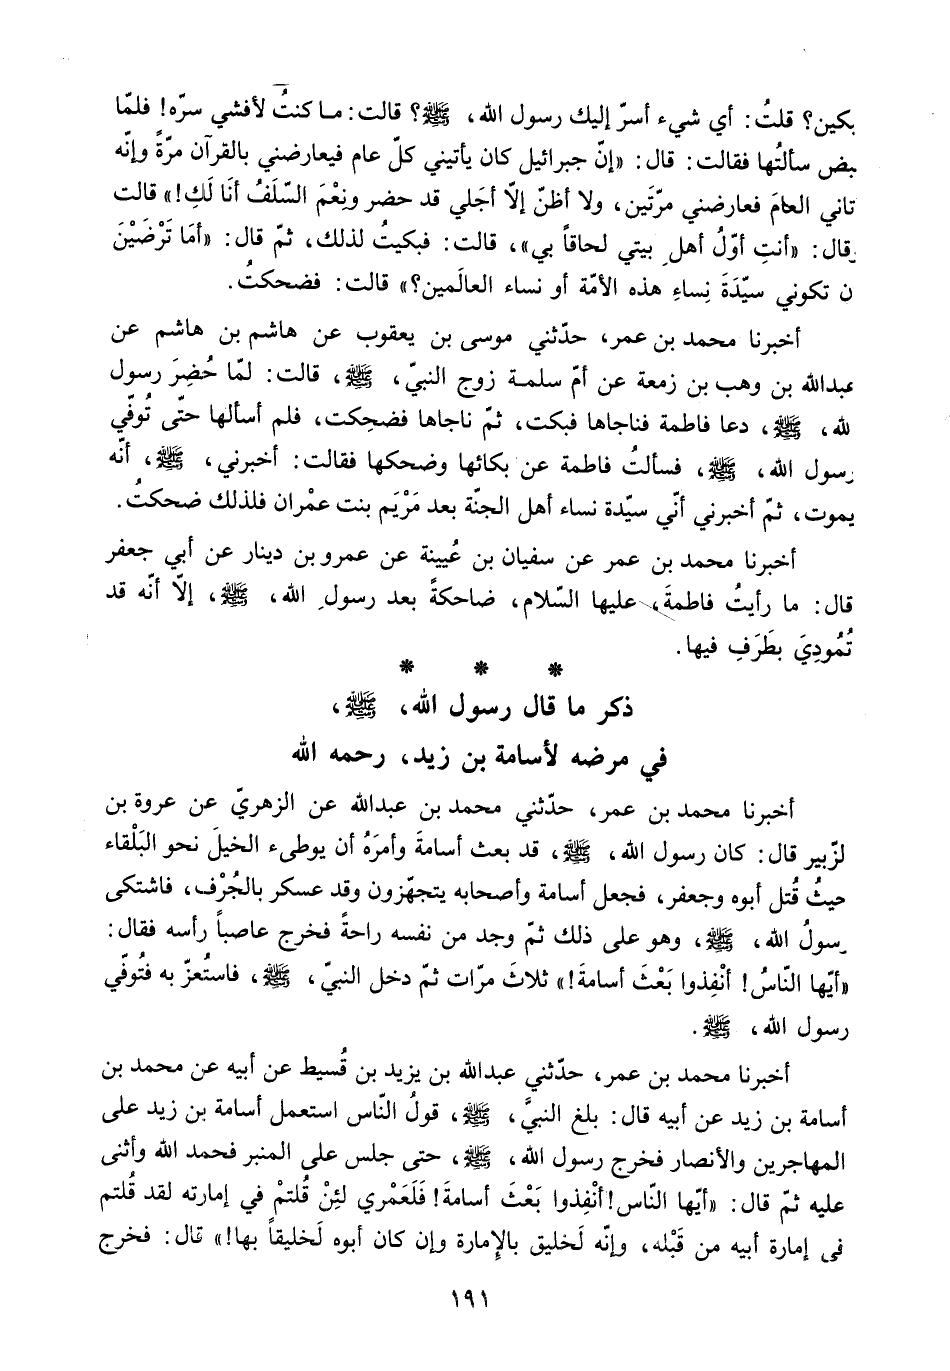 بكين؟ قلتُ: أي شيء أسرّ إليك رسول الله، ﷺ؟ قالت: ما كنتُ لأفشي سرّه! فلمّا
بض سألتُها فقالت: قال: «إنّ جبرائيل كان يأتيني كلّ عام فيعارضني بالقرآن مرّةً وإنّه
تاني العامَ فعارضني مرّتَين، ولا أظنّ إلاّ أجَلي قد حضر ونِعْمَ السّلَفُ أنَا لَكِ!» قالت
قال: «أنتِ أوّلُ أهلِ بيتي لحاقاً بي»، قالت: فبكيتُ لذلك، ثمّ قال: «أمَا تَرْضَيْنَ
ن تكوني سيّدَةَ نِساءِ هذه الأمّة أو نساء العالَمين؟» قالت: فضحكتُ.
أخبرنا محمد بن عمر، حدّثني موسى بن يعقوب عن هاشم بن هاشم عن
عبدالله بن وهب بن زمعة عن أمّ سلمة زوج النبيّ، ﷺ، قالت: لمّا حُضِرَ رسول
لله، ﷺ، دعا فاطمة فناجاها فبكت، ثمّ ناجاها فضحِكت، فلم أسألها حتّى تُوفّي
رسول الله، ﷺ، فسألتُ فاطمة عن بكائها وضحكها فقالت: أخبرني، ﷺ، أنّه
يموت، ثمّ أخبرني أنّي سيّدة نساء أهل الجنّة بعد مَرْيَم بنت عمْران فلذلك ضحكتُ.
أخبرنا محمد بن عمر عن سفيان بن عُيينة عن عمرو بن دينار عن أبي جعفر
قال: ما رأيتُ فاطمةَ، عليها السّلام، ضاحكةً بعد رسولِ الله، ﷺ، إلاّ أنّه قد
تُمُودِيَ بطَرَفِ فيها.
* * *
ذكر ما قال رسول الله، ﷺ،
في مرضه لأسامة بن زيد، رحمه الله
أخبرنا محمد بن عمر، حدّثني محمد بن عبدالله عن الزهريّ عن عروة بن
لزّبير قال: كان رسول الله، ﷺ، قد بعث أسامةَ وأمرَهُ أن يوطىء الخيلَ نحو البَلْقاء
حيثُ قُتل أبوه وجعفر، فجعل أسامة وأصحابه يتجهّزون وقد عسكر بالجُرْف، فاشتكى
رسولُ الله، ﷺ، وهو على ذلك ثمّ وجد من نفسه راحةً فخرج عاصباً رأسه فقال:
«أيّها النّاسُ! أنْفِذوا بَعْثَ أسامةَ!» ثلاثَ مرّات ثمّ دخل النبيّ، ﷺ، فاستُعزّ به فتُوفّي
رسول الله، ﷺ.
أخبرنا محمد بن عمر، حدّثني عبدالله بن يزيد بن قُسيط عن أبيه عن محمد بن
أسامة بن زيد عن أبيه قال: بلغ النبيَّ، ﷺ، قولُ النّاس استعمل أسامة بن زيد على
المهاجرين والأنصار فخرج رسول الله، ﷺ، حتى جلس على المنبر فحمد الله وأثنى
عليه ثمّ قال: «أيّها النّاس! أنْفِذوا بَعْثَ أسامةَ! فَلَعَمْري لئِنْ قُلتمْ في إمارته لقد قُلتم
في إمارة أبيه من قَبْله، وإنّه لَخليق بالإمارة وإن كان أبوه لَخليقاً بها!» قال: فخرج
١٩١